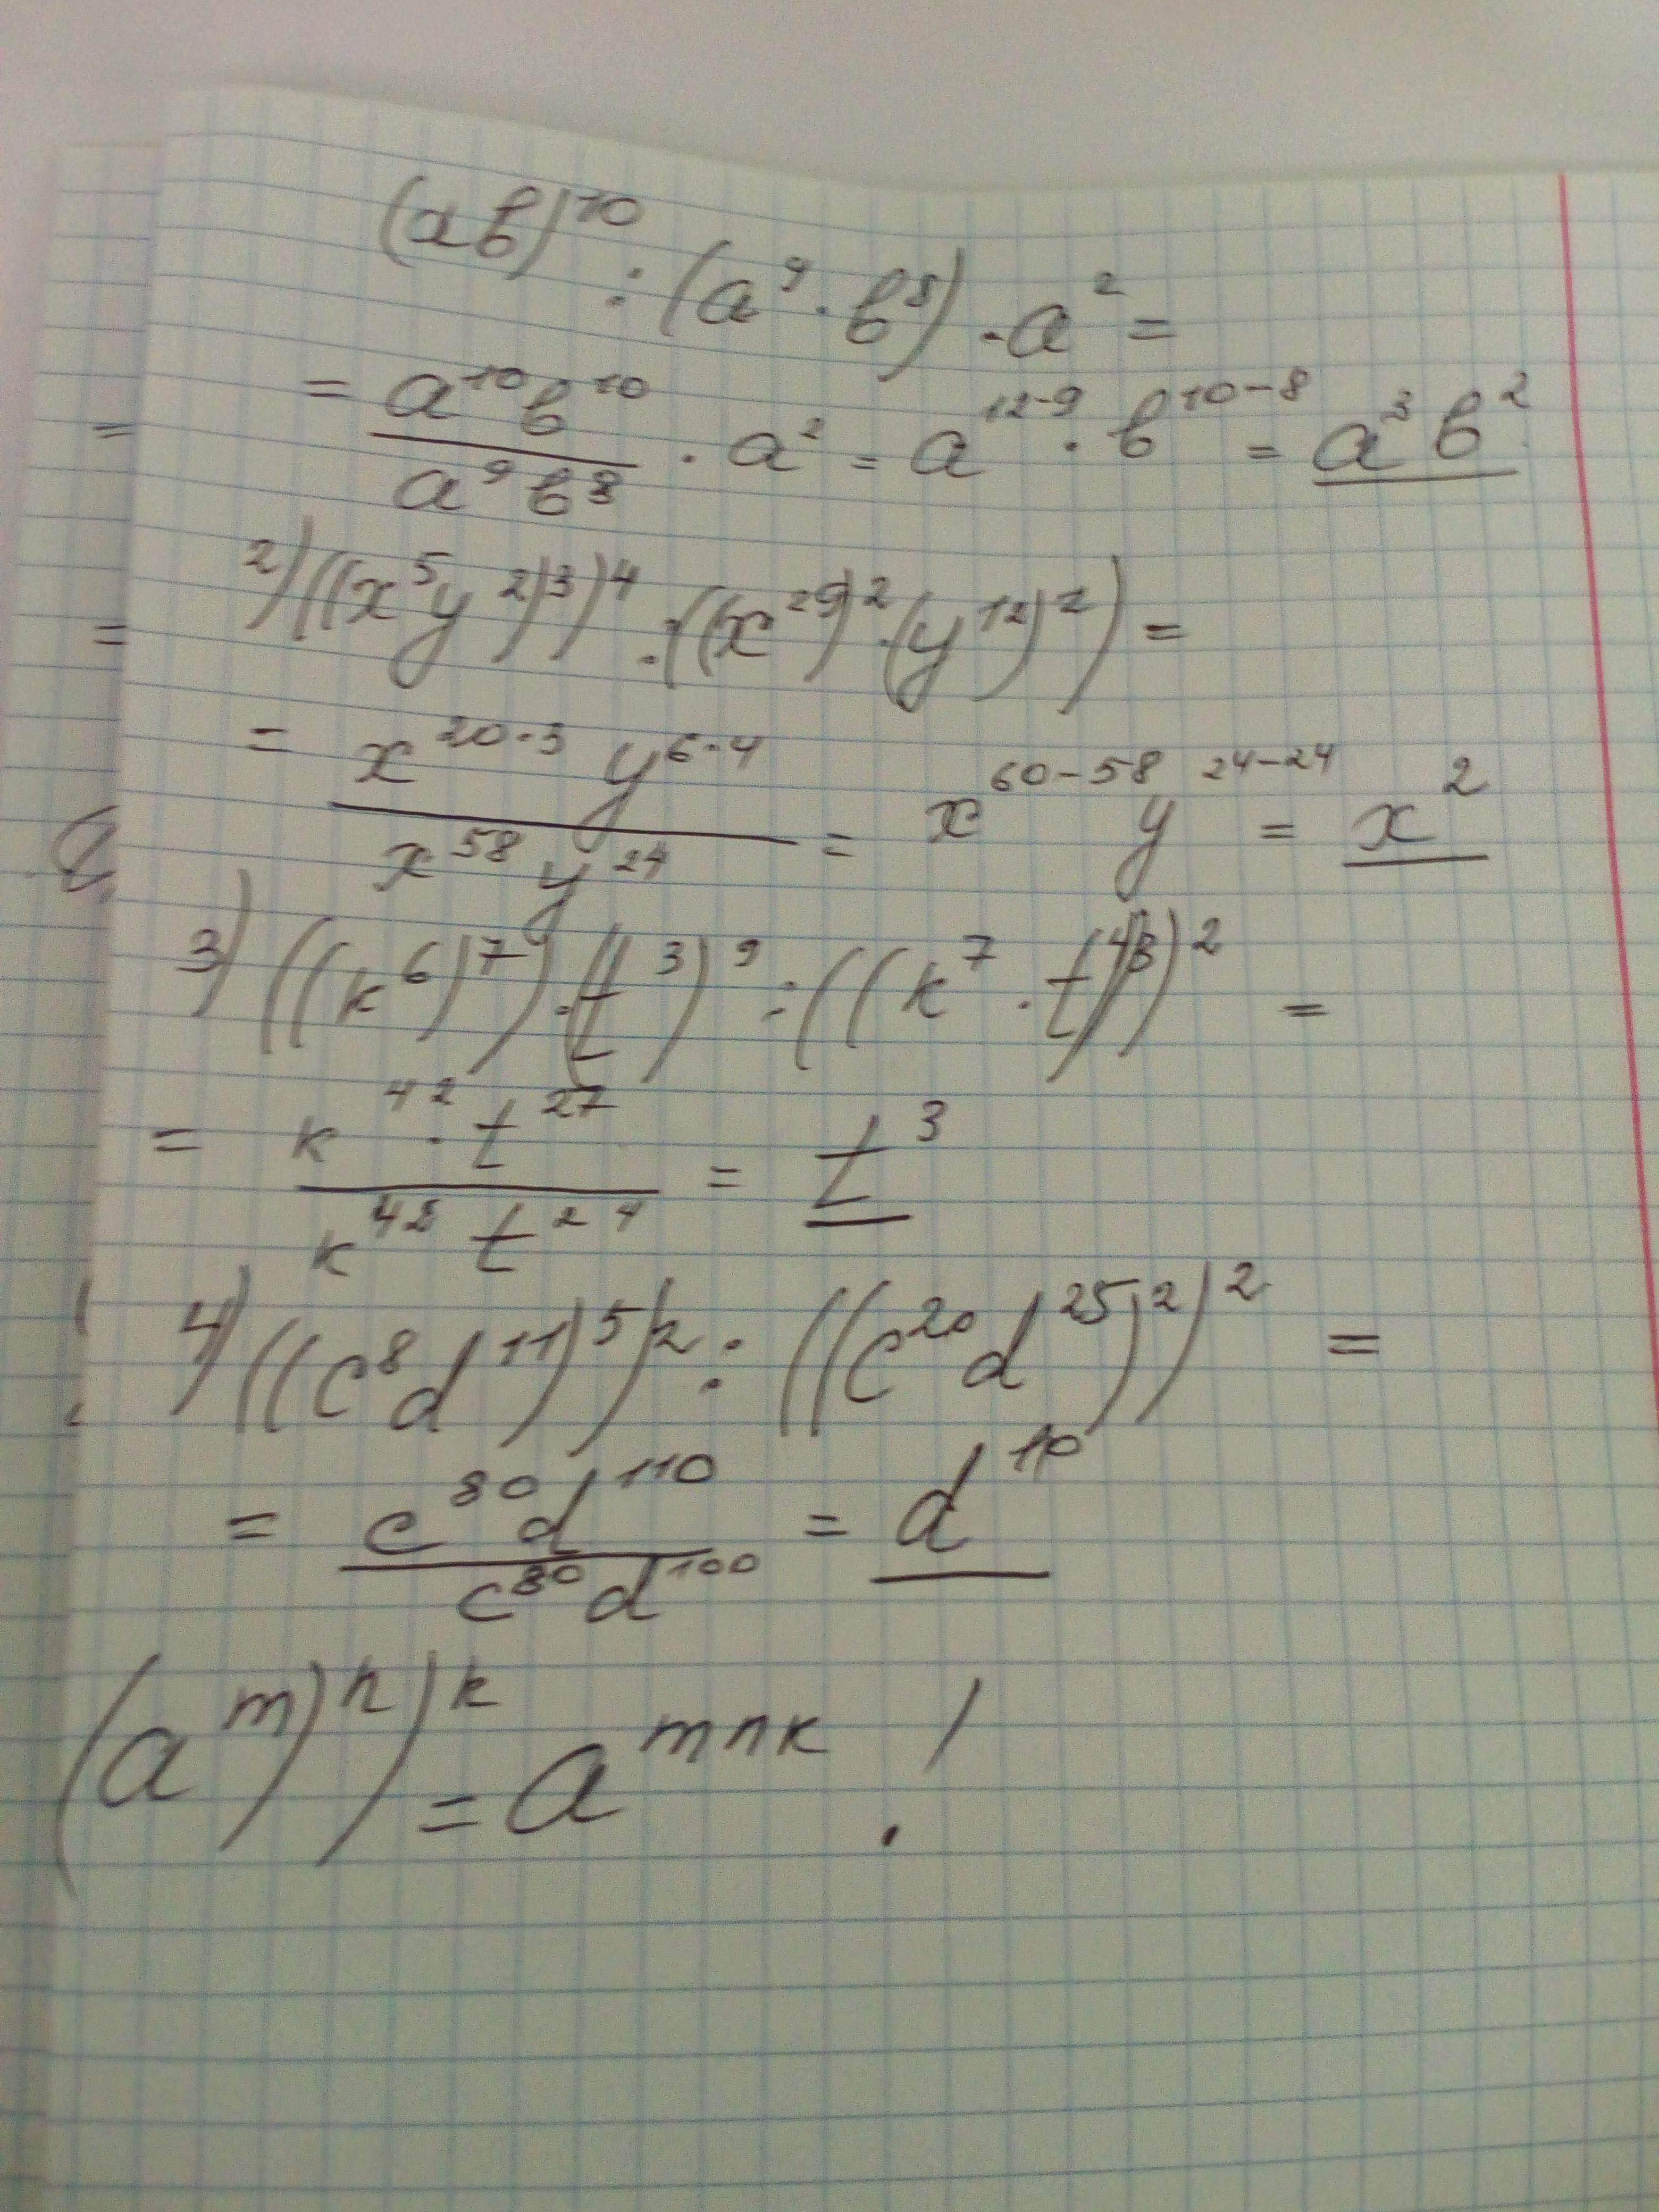 (xв)¹⁰ : (a⁹ · в⁸) · a² =
= a¹⁰в¹⁰ / a⁹в⁸ · a² = a¹²⁻⁹ · в¹⁰⁻⁸ = a³в²
2) ((x⁵y²)³)⁴ : ((x²⁹)² · (y¹²)²) =
= x²⁰·³ y⁶·⁴ / x⁵⁸ y²⁴ = x⁶⁰⁻⁵⁸ y²⁴⁻²⁴ = x²
3) ((k⁶)⁷) · (t³)⁹ : ((k⁷ · t⁴)³)² =
= k⁴² · t²⁷ / k⁴² t²⁴ = t³
4) ((c⁸d¹¹)⁵)² : ((c²⁰d²⁵)²)² =
= c⁸⁰d¹¹⁰ / c⁸⁰d¹⁰⁰ = d¹⁰
(aᵐ)ⁿ)ᵏ = aᵐⁿᵏ !